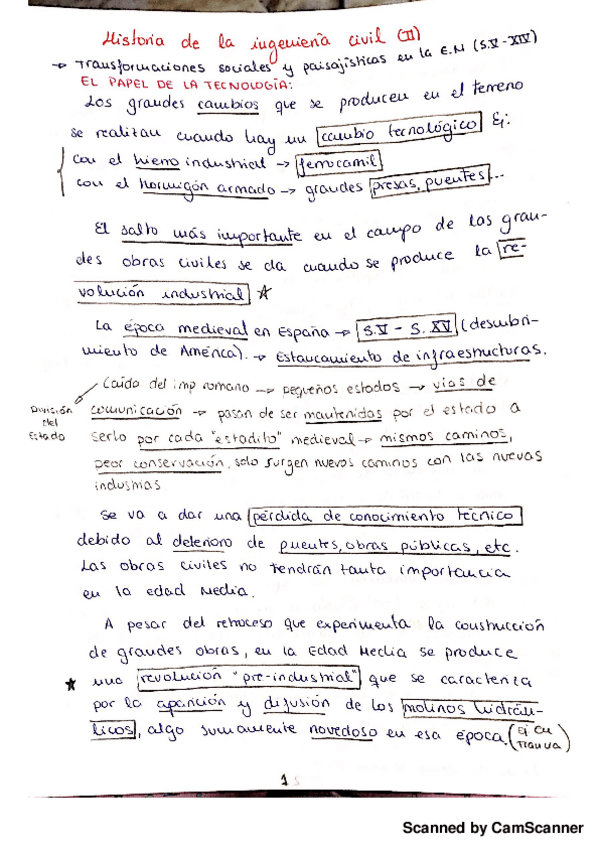 Historia de la ingeniería civil (II)
→ Transformaciones sociales y paisajísticas en la E.M (S.V-XIV)
EL PAPEL DE LA TECNOLOGÍA:
Los grandes cambios que se producen en el terreno
se realizan cuando hay un cambio tecnológico Ej:
con el hierro industrial → ferrocarril
con el hormigón armado → grandes presas, puentes...
El salto más importante en el campo de las gran-
des obras civiles se da cuando se produce la re-
volución industrial ☆
La época medieval en España → S.V - S.XV (descubri-
miento de América). → Estancamiento de infraestructuras.
Caída del imp romano → pequeños estados → vías de
División
del
Estado
comunicación → pasan de ser mantenidas por el estado a
serlo por cada "estadito" medieval → mismos caminos,
peor conservación, solo surgen nuevos caminos con las nuevas
industrias
Se va a dar una pérdida de conocimiento técnico
debido al deterioro de puentes, obras públicas, etc.
Las obras civiles no tendrán tanta importancia
en la edad Media.
A pesar del retroceso que experimenta la construcción
de grandes obras, en la Edad Media se produce
★ una revolución "pre-industrial" que se caracteriza
por la aparición y difusión de los molinos hidráu-
licos, algo sumamente novedoso en esa época. (Ej
1
Scanned by CamScanner